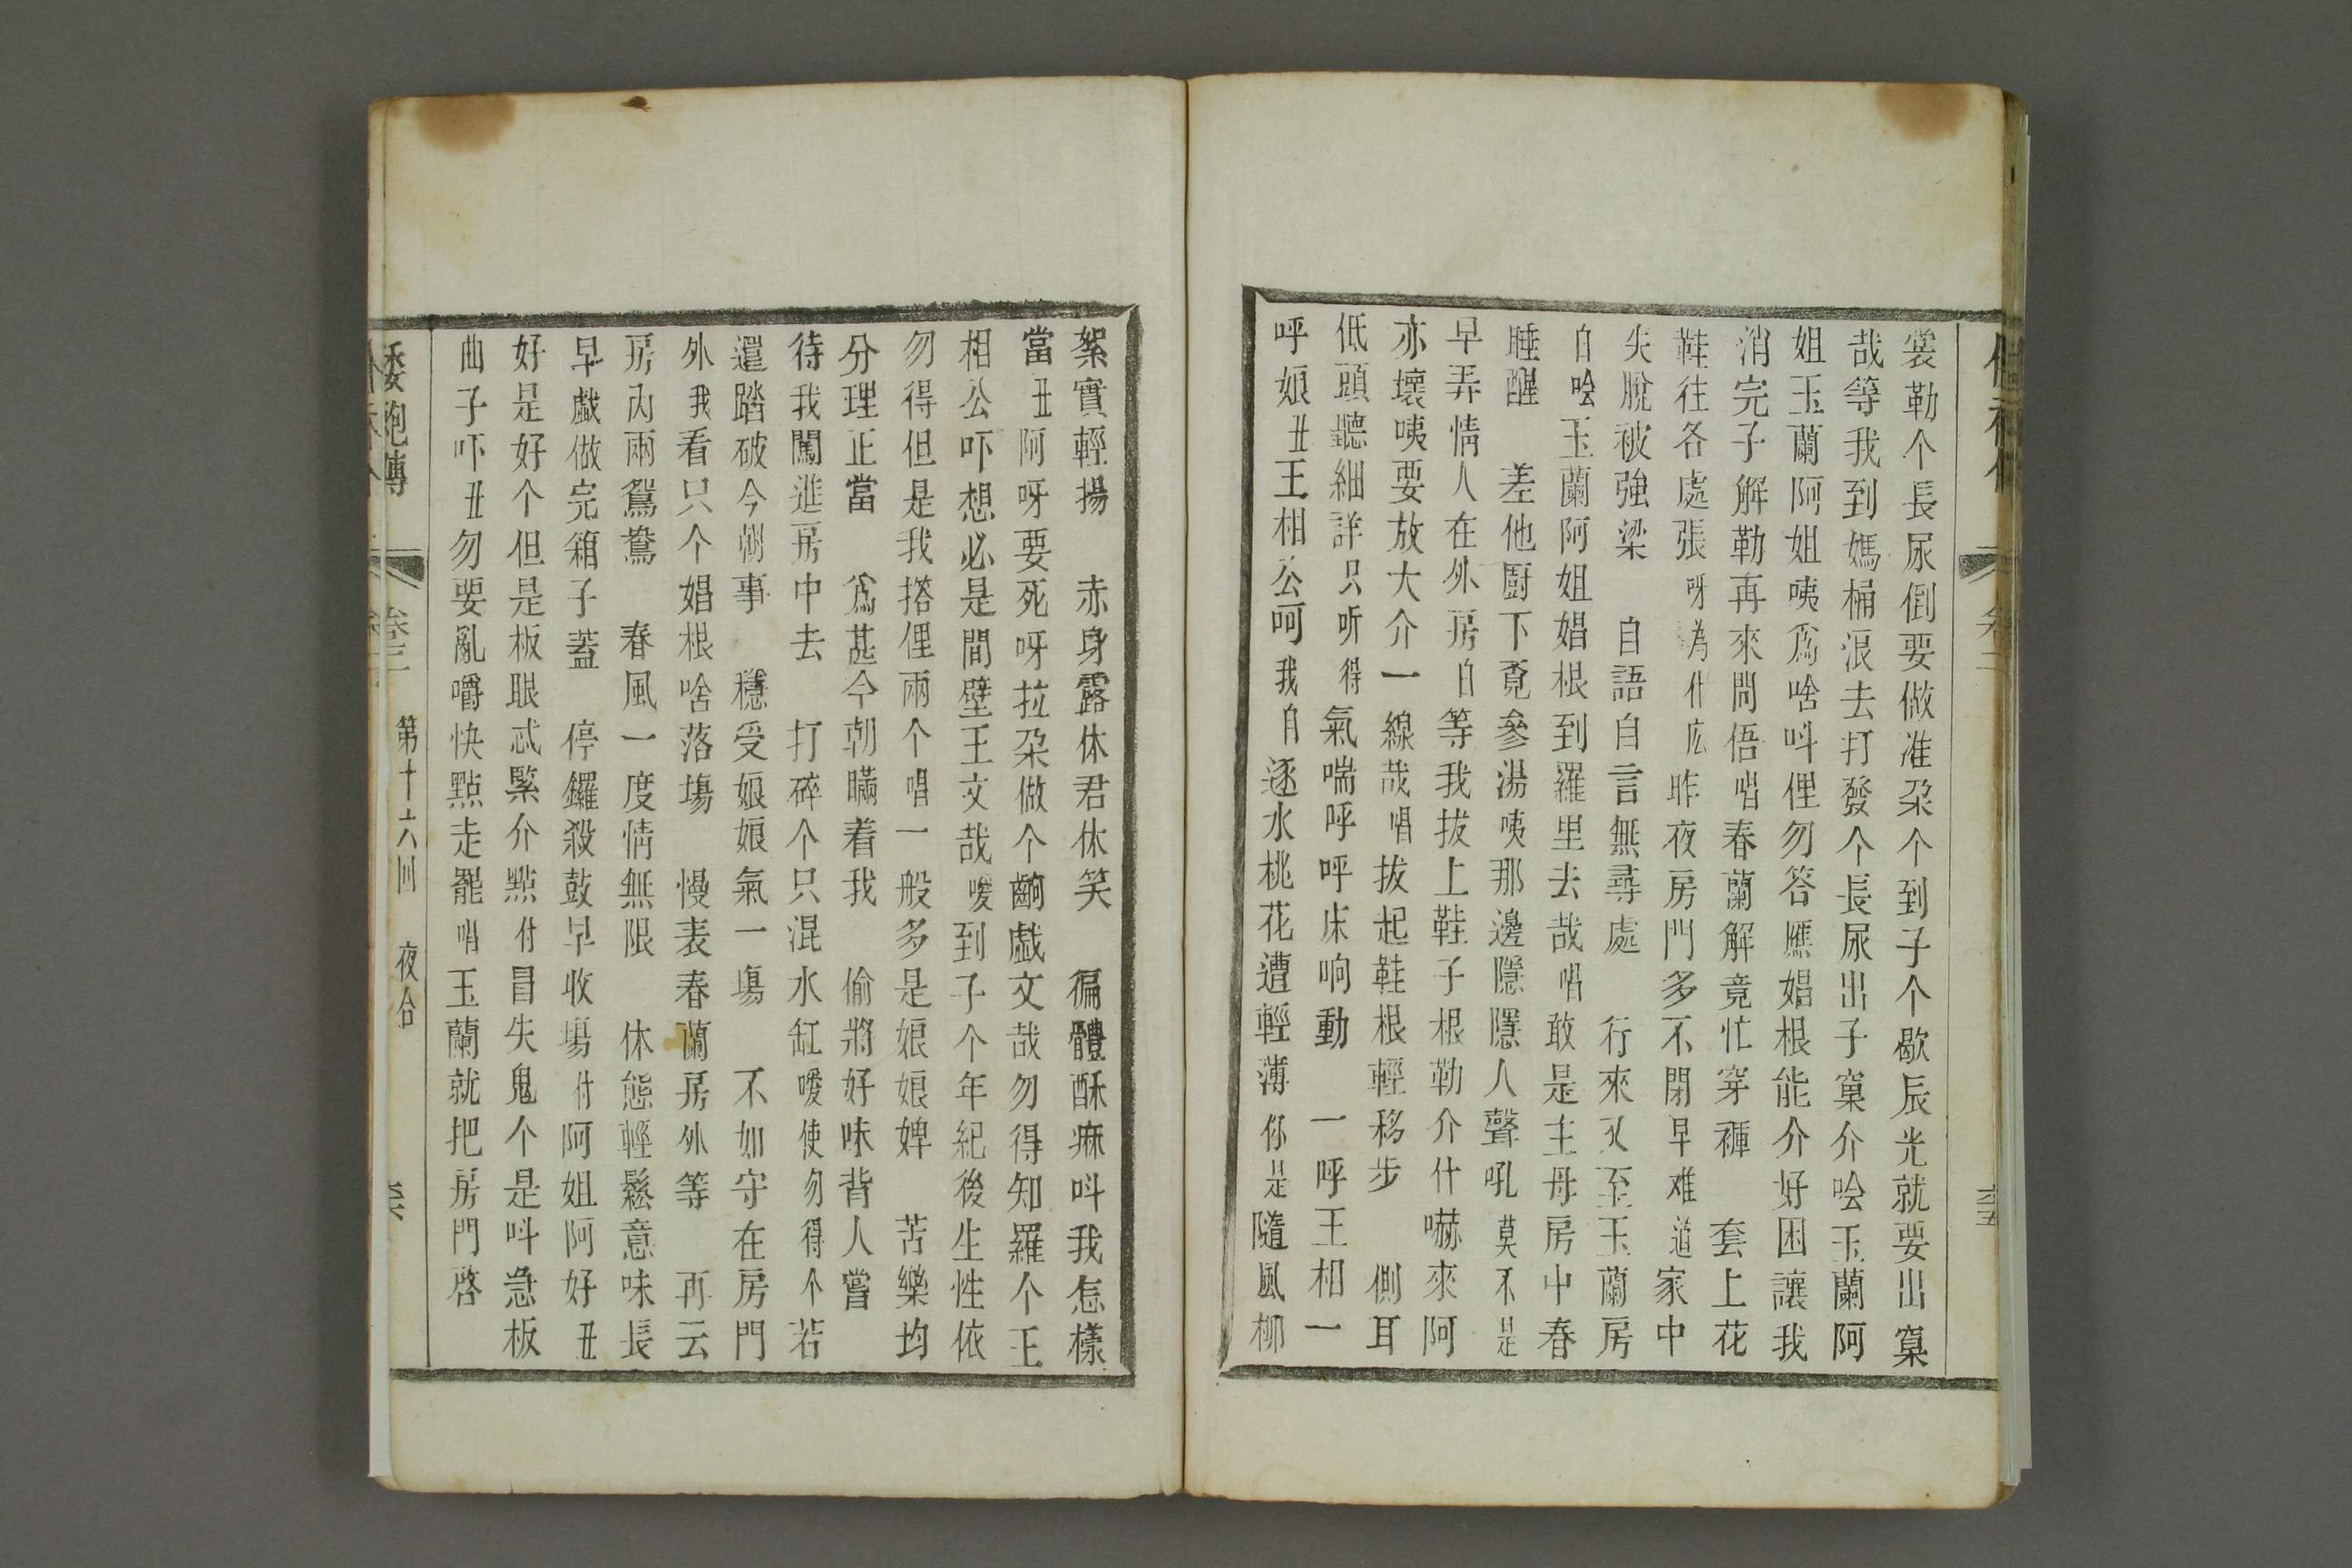 裳勒个長尿倒要做准朶个到子个歇辰光就要出窠
哉等我到媽桶浪去打發个長尿出子窠介哙玉蘭阿
姐玉蘭阿姐咦爲啥呌俚勿答應娼根能介好困讓我
消完子解勒再來問俉唱春蘭解竟忙穿褲 套上花
鞋往各處張呀為什庅昨夜房門多不閉早难道家中
失脫被強梁 自語自言無尋處 行來又至玉蘭房
白哙玉蘭阿姐娼根到羅里去哉唱敢是主母房中春
睡醒 差他厨下覔參湯咦那邊隱隱人聲吼莫不是
早弄情人在外房白等我拔上鞋子根勒介什嚇來阿
亦壞咦要放大介一線哉唱拔起鞋根輕移步 側耳
低頭聽細詳只听得氣喘呼呼床响動 一呼王相一
呼娘丑王相公呵我自逐水桃花遭輕薄你是隨風柳
絮實輕揚 赤身露体君休笑 徧體酥痳呌我怎樣
當丑阿呀要死呀拉朶做个齣戯文哉勿得知羅个王
相公吓想必是間壁王文哉嗳到子个年紀後生性依
勿得但是我搭俚兩个唱一般多是娘娘婢 苦樂均
分理正當 爲甚今朝瞞着我 偷將好味背人嘗
待我闖進房中去 打碎个只混水缸嗳使勿得个若
還踏破今朝事 穩受娘娘氣一塲 不如守在房門
外我看只个娼根啥落塲 慢表春蘭房外等 再云
房内兩鴛鴦 春風一度情無限 休態輕鬆意味長
早戯做完箱子蓋 停鑼殺鼓早收塲付阿姐阿好丑
好是好个但是板眼忒緊介點付冒失鬼个是呌急板
曲子吓丑勿要亂嚼快點走罷唱玉蘭就把房門啓
倭袍傳 卷三 第十六回 夜合